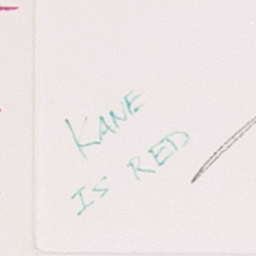 KANE
IS RED